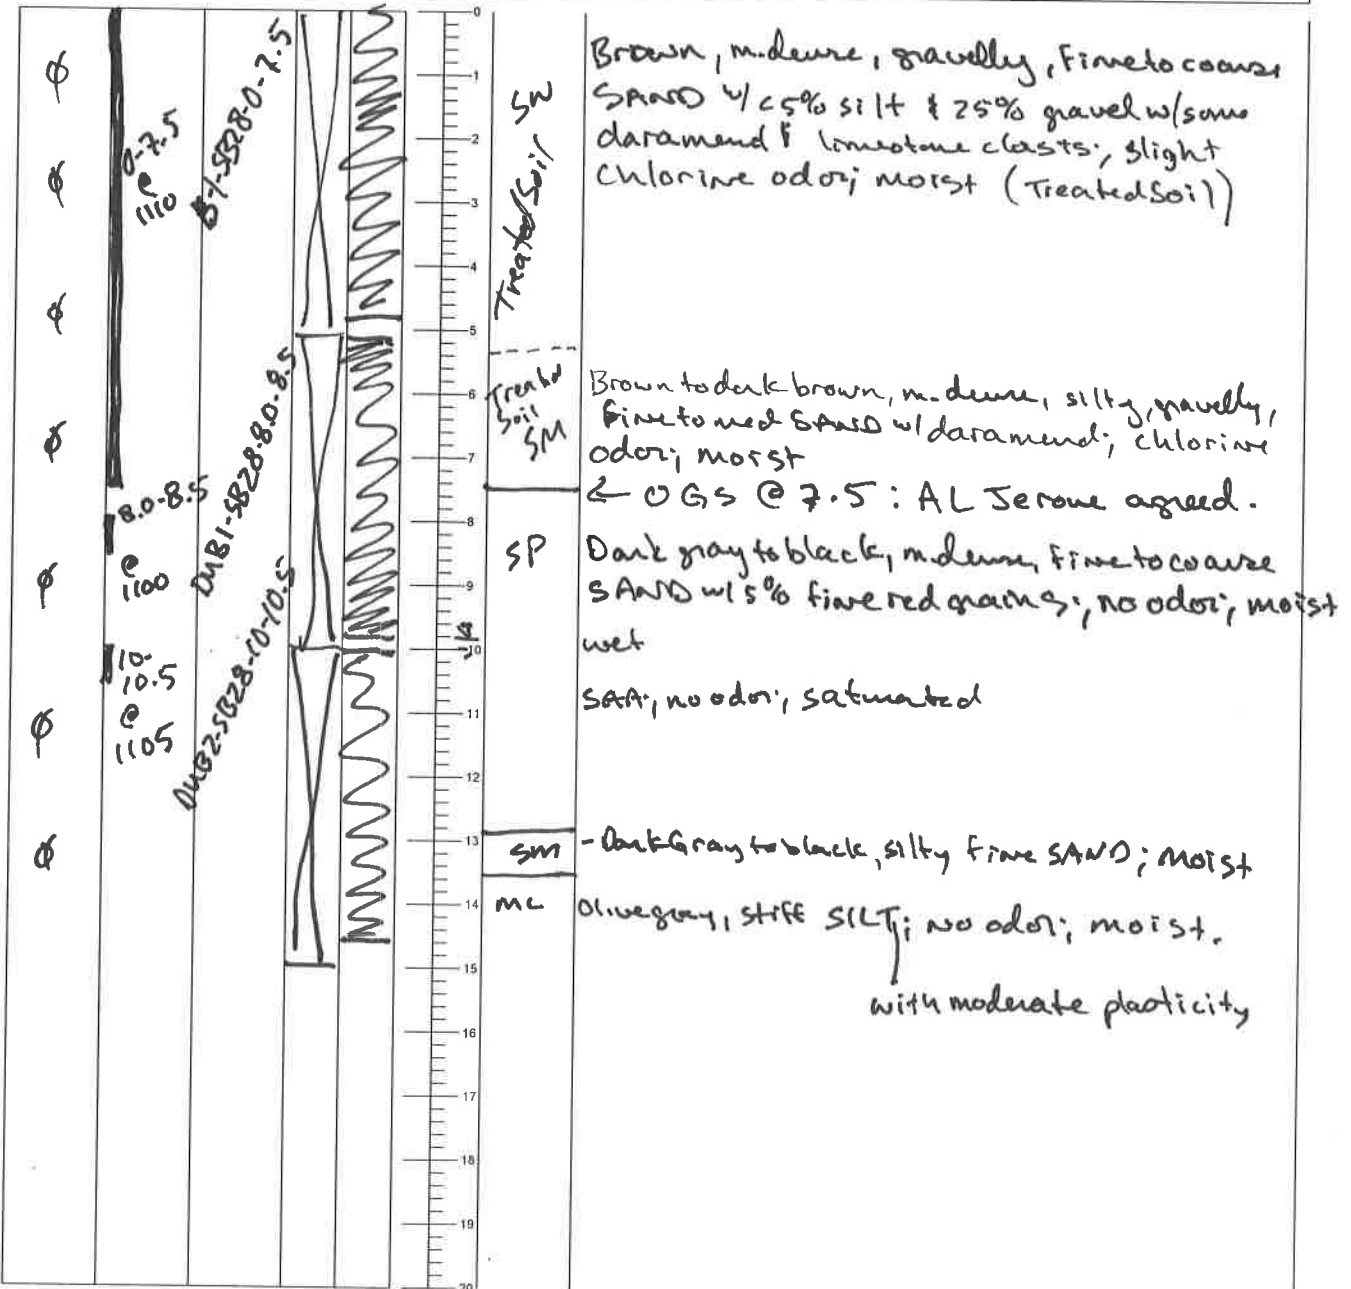 Ø
Ø
Ø
Ø
Ø
Ø
Ø
0-7.5
@
1110
8.0-8.5
@
1100
10-
10.5
@
1105
-SB28-0-7.5
DUB1-SB28-8.0-8.5
DUB2-SB28-10-10.5
0
1
2
3
4
5
6
7
8
9
10
11
12
13
14
15
16
17
18
19
20
Treated Soil SW
Treated
Soil
SM
SP
SM
ML
Brown, m.dense, gravelly, Fine to coarse
SAND w/ <5% silt & 25% gravel w/some
daramend & limestone clasts; slight
Chlorine odor; moist (Treated Soil)
Brown to dark brown, m.dense, silty, gravelly,
Fine to med SAND w/daramend; chlorine
odor; moist
← OGS @ 7.5: AL Jerome agreed.
Dark gray to black, m.dense, Fine to coarse
SAND w/ 5% fine red grains; no odor; moist
wet
SAA; no odor; saturated
-Dark Gray to black, silty Fine SAND; moist
Olive gray, stiff SILT; no odor; moist.
with moderate plasticity